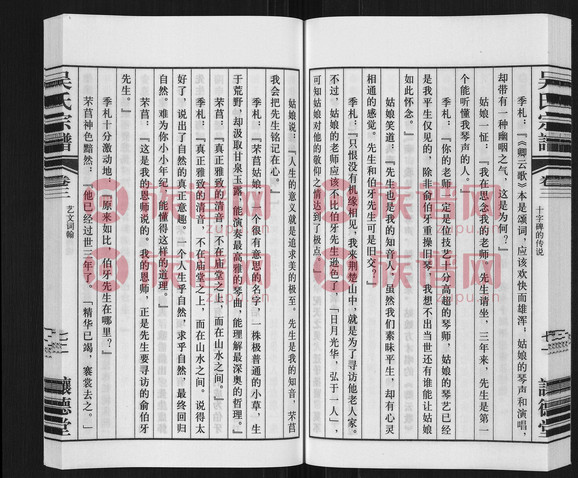 吴氏宗谱
卷三
十字碑的传说
七一
让德堂
季札：『《卿云歌》本是颂词，应该欢快而雄浑；姑娘的琴声和演唱，
却带有一种幽咽之气，这是为何？』
姑娘一怔：『我在思念我的老师。先生请坐，三年来，先生是第一
个能听懂我琴声的人。』
季札：『你的老师一定是位技艺十分高超的琴师，姑娘的琴艺已经
是我平生仅见的，除非俞伯牙重操旧琴，我想不出当世还有谁能让姑娘
如此怀念。』
姑娘笑道：『先生也是我的知音人，虽然我们素昧平生，却有心灵
相通的感觉。先生和伯牙先生可是旧交？』
季札：『只恨没有机缘相见，我来荆楚山中，就是为了寻访他老人家。
不过，姑娘的老师应该不比伯牙先生逊色了，「日月光华，弘于一人」，
可知姑娘对他的敬仰之情达到了极点。』
姑娘说：『人生的意义就是追求美的极至。先生是我的知音，芣苢
我会把先生铭记在心。』
季札：『芣苢姑娘，一个很有意思的名字，一株极普通的小草，生
于荒野，却汲取甘泉玉露，能演奏最高雅的琴曲，能理解最深奥的哲理。』
芣苢：『真正雅致的清音，不在庙堂之上，而在山水之间。』
季札：『真正雅致的清音，不在庙堂之上，而在山水之间。说得太
好了，说出了自然的真正意趣。一个人生乎自然，求乎自然，最终回归
自然。难为你小小年纪，能懂得这样的道理。』
芣苢：『这是我的恩师说的。我的恩师，正是先生要寻访的俞伯牙
先生。』
季札十分激动地：『原来如比，伯牙先生在哪里？』
芣苢神色黯然：『他已经过世三年了。「精华已竭，褰裳去之。」
吴氏宗谱
卷三
艺文词翰
七二
让德堂